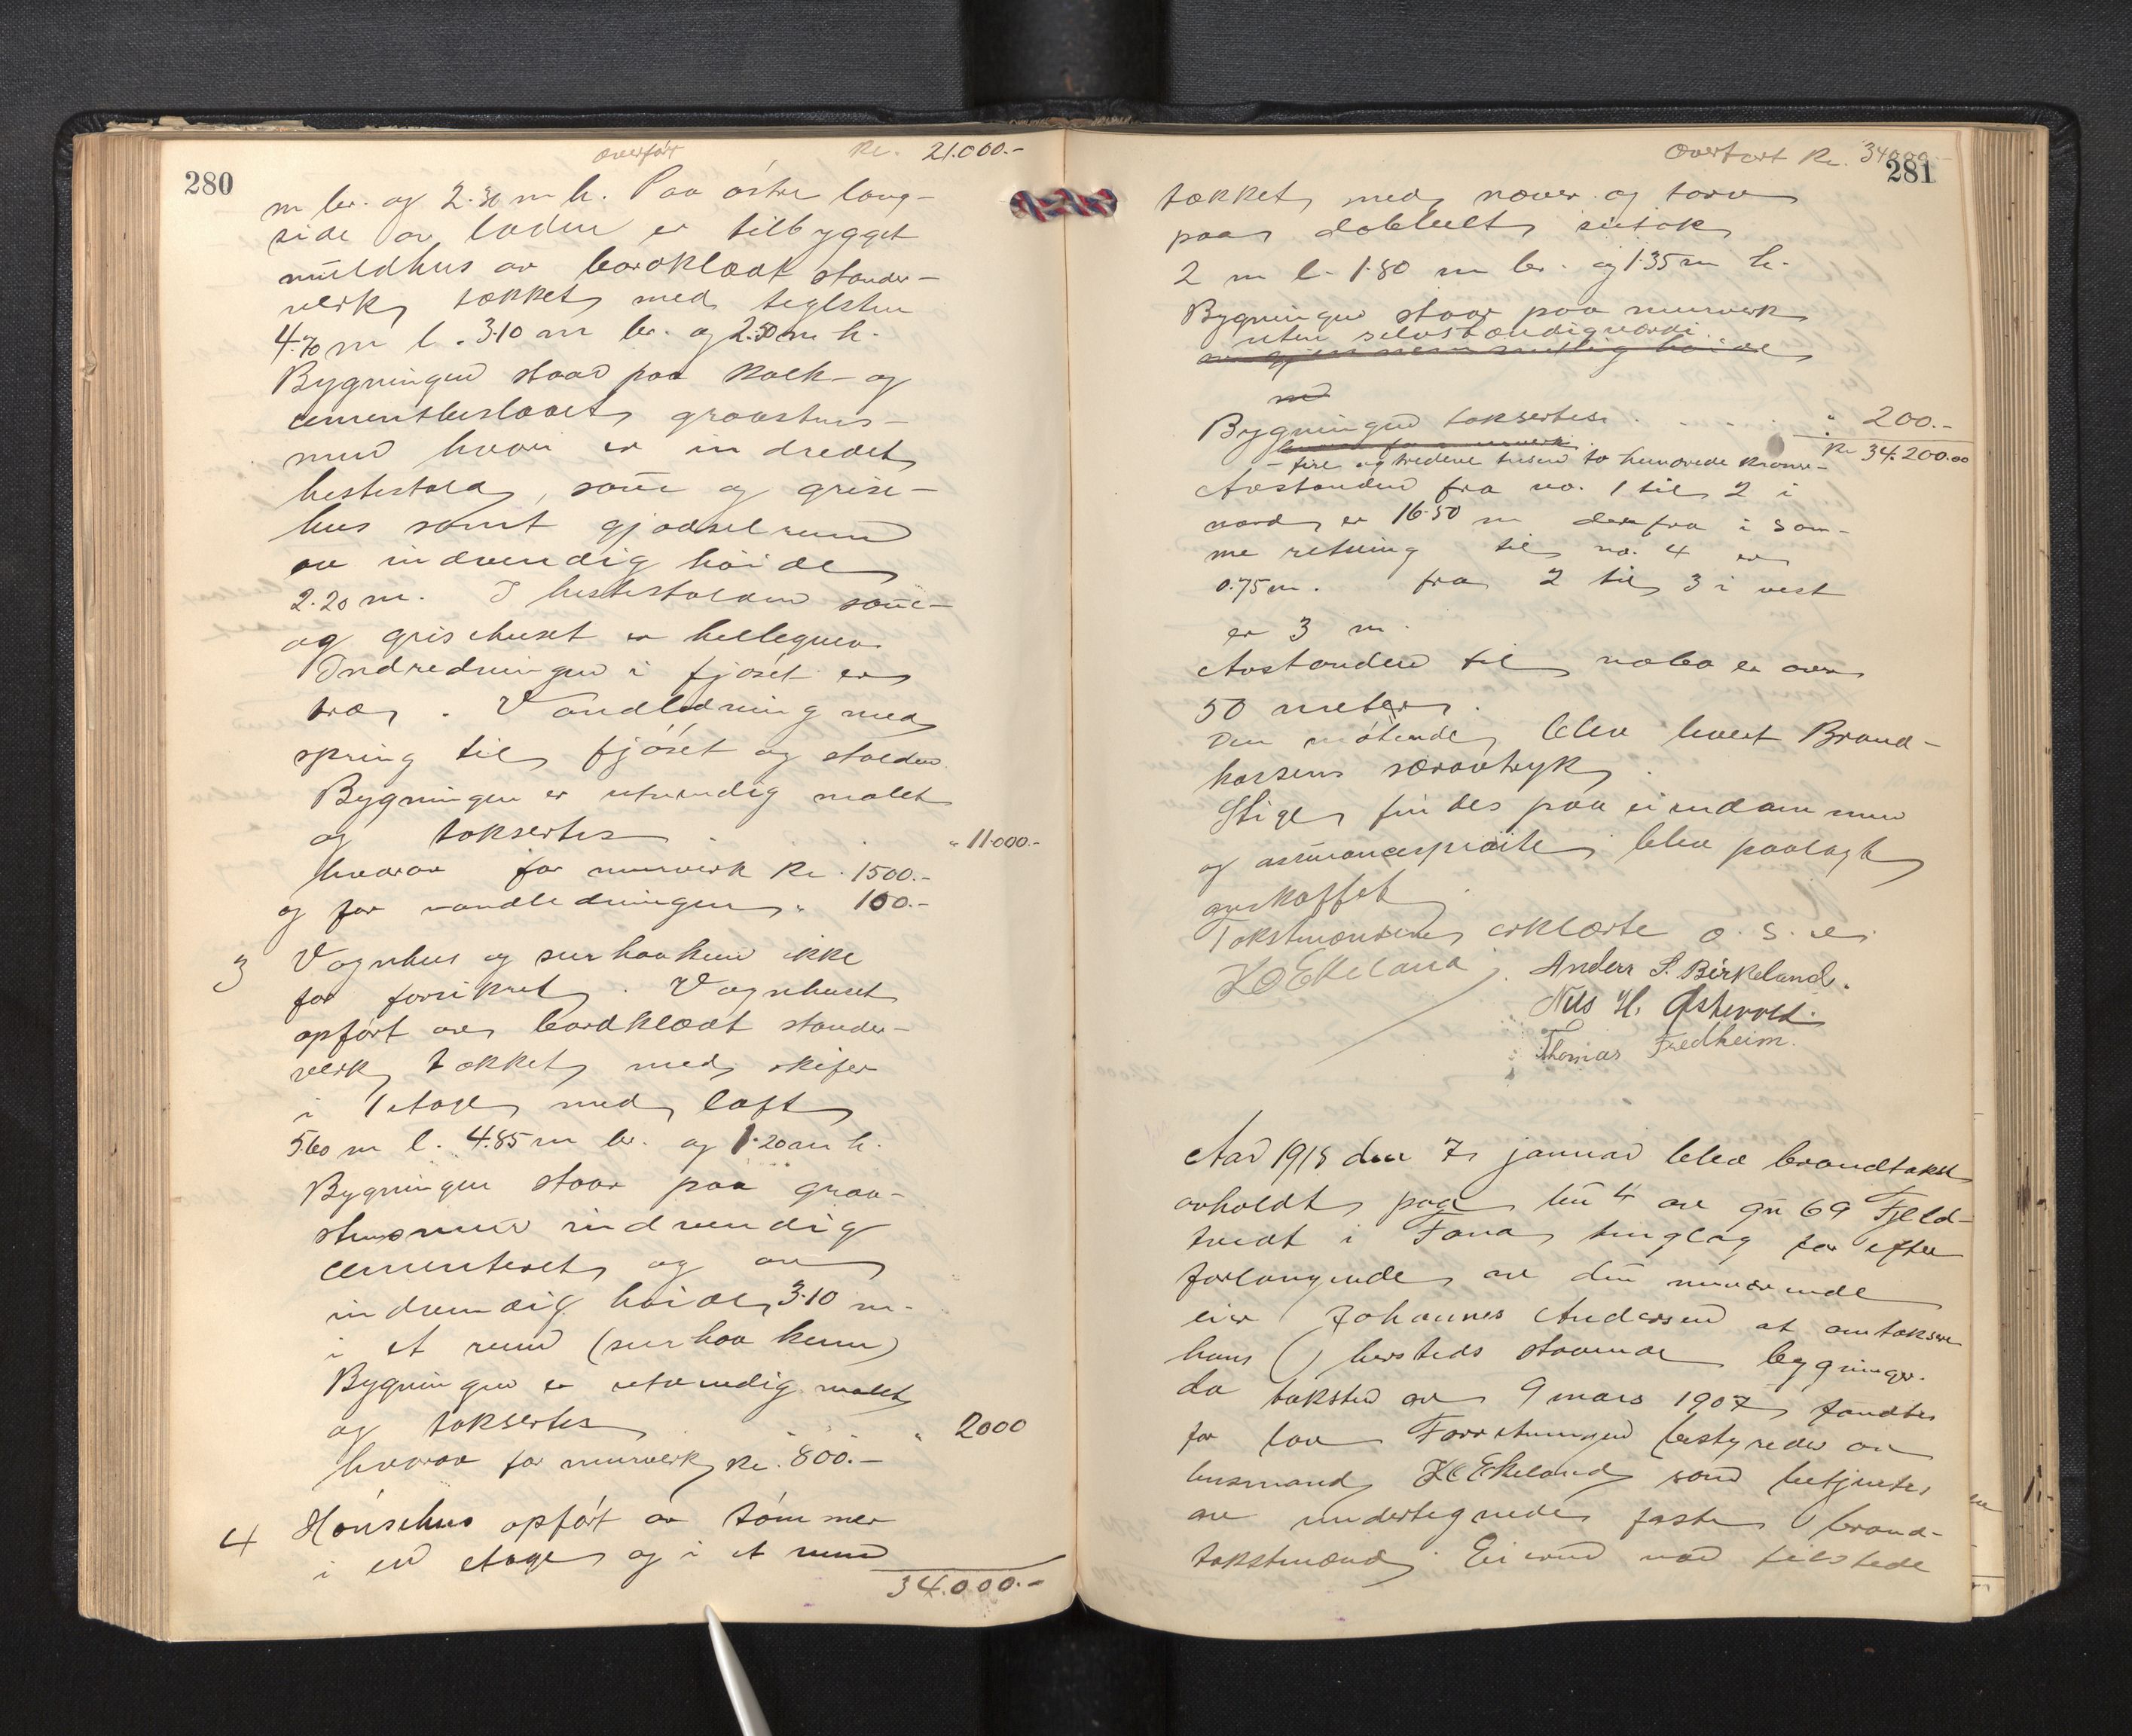 280
overført Kr. 21.000.-
m br. og 2.30 m h. Paa østre lang-
side av laden er tilbygget
muldhus av bordklædt stander-
verk, tækket med teglsten
4.70 m l. 3.10 m br. og 2.50 m h.
Bygningen staar paa kalk- og
cementbeslaaet graastens-
mur hvori er indredet
hestestald, saue og grise-
hus samt gjødselrum
av indvendig høide
2.20 m. I hestestalden saue-
og grisehuset er hellegulv.
Indredningen i fjøset er
træ. Vandledning med
spring til fjøset og stalden.
Bygningen er utvendig malet
og takseres . . " 11.000.-
hvorav for murverk Kr. 1500.-
og for vandledningen " 100.-
3 Vognhus og surhaakum ikke
før forsikret. Vognhuset
opført av bordklædt stander-
verk, tækket med skifer
i 1 etage med loft
5.60 m l. 4.85 m br. og 1.20 m h.
Bygningen staar paa graa-
stensmur indvendig
cementeret og av
indvendig høide 3.10 m.
i et rum (surhaakum)
Bygningen er utvendig malet
og takseres " 2000
hvorav for murverk Kr. 800.-
4 Hønsehus opført av tømmer
i en etage og i et rum
34.000.-
Overført Kr. 34000.-
281
tækket med næver og torv
paa dobbelt sutak
2 m l. 1.80 m br. og 1.35 m h.
Bygningen staar paa murverk
uten selvstændig værdi.
Bygningen takseres . . . . " 200.-
Kr 34.200.00
- fire og tredeve tusen to hundrede kroner-
Avstanden fra no. 1 til 2 i
nord er 16.50 m derfra i sam-
me retning til no. 4 er
0.75 m. fra 2 til 3 i vest
er 3 m.
Avstanden til nabo er over
50 meter.
Den møtende blev levert Brand-
kassens særavtryk.
Stige findes paa eiendommen
og assuranceplaite blev paalagt
anskaffet.
Takstmændene erklærte o. s. v.
K O Ekeland. Anders S. Birkeland.
Nils H. Østervold.
Thomas Fredheim.
Aar 1918 den 7. januar blev brandtakst
avholdt paa bn 4 av gn 69 Fjeld-
tvedt i Fana tinglag for efter
forlangende av den nuværende
eier Johannes Andersen at omtaksere
hans hersteds staaende bygninger.
da taksten av 9 mars 1907 fandtes
for lav Forretningen bestyredes av
lensmand K O Ekeland som betjentes
av undertegnede faste brand-
takstmænd. Eieren var tilstede